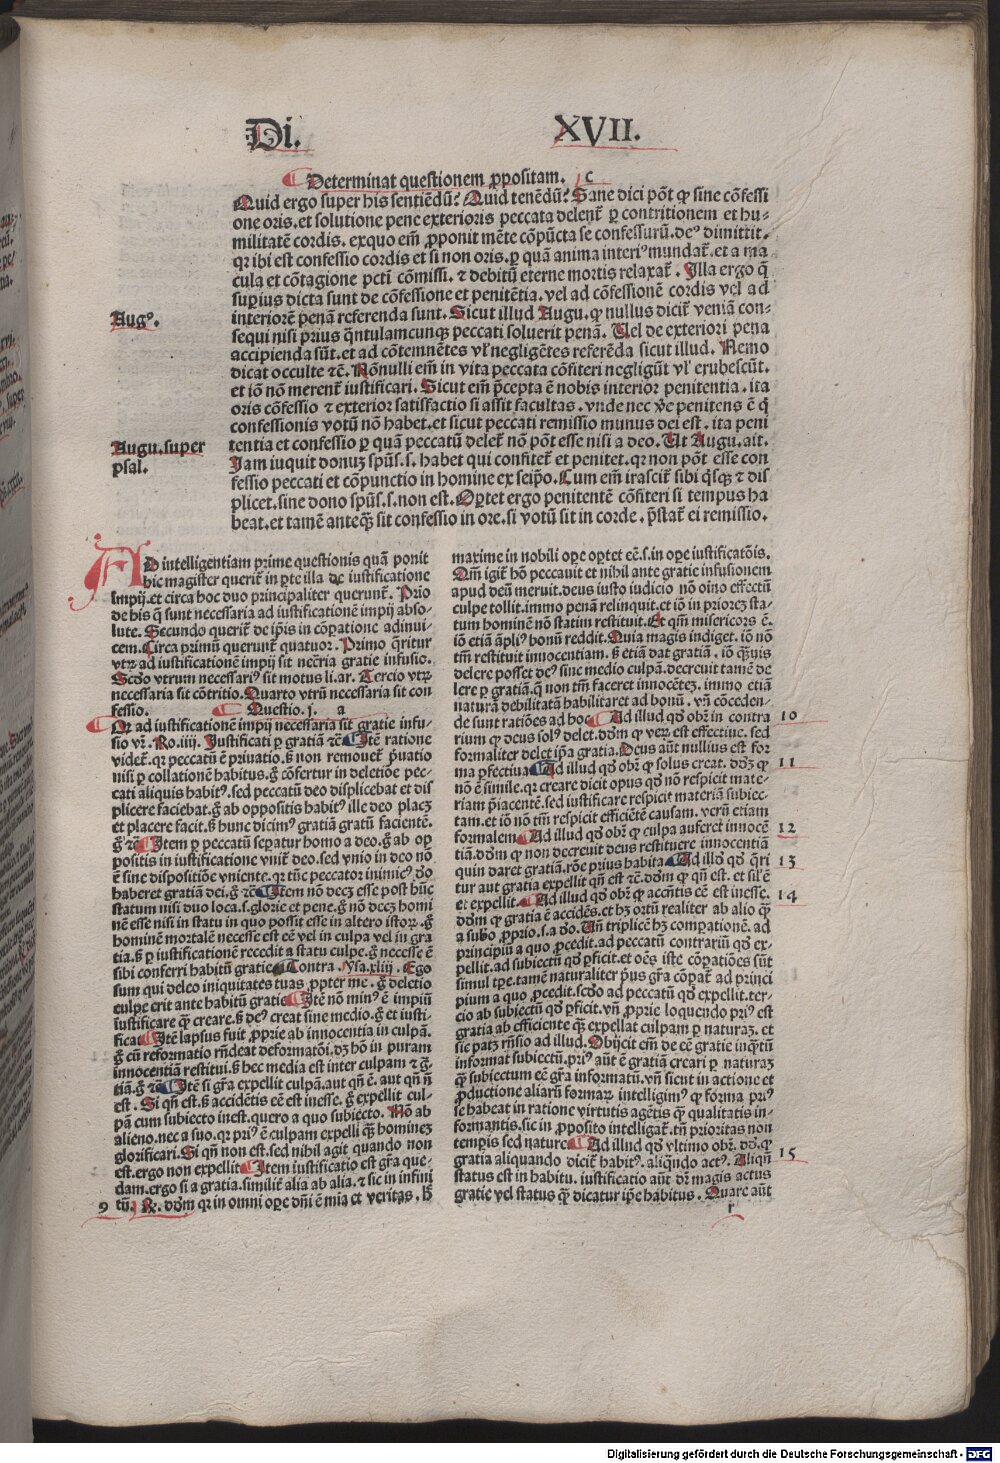 Di. XVII.
Determinat questionem ꝓpositam. c
Quid ergo super his sentiẽdũ? Quid tenẽdũ? Sane dici põt ꝙ sine cõfessi
one oris. et solutione pene exterioris peccata delent̃ ꝑ contritionem et hu-
militatẽ cordis. exquo em̃ ꝓponit mẽte cõpũcta se confessurũ. deꝰ dimittit.
qꝛ ibi est confessio cordis et si non oris. ꝑ quã anima interiꝰ mundat̃. et a ma
cula et cõtagione pcti cõmissi. ⁊ debitũ eterne mortis relaxat̃. Illa ergo q̃
supius dicta sunt de cõfessione et penitẽtia. vel ad cõfessionẽ cordis vel ad
Augꝰ.
interiorẽ penã referenda sunt. Sicut illud Augu. ꝙ nullus dicit̃ veniã con-
sequi nisi prius q̃ntulamcunqꝫ peccati soluerit penã. Uel de exteriori pena
accipienda sũt. et ad cõtemnẽtes vl̃ negligẽtes referẽda sicut illud. Nemo
dicat occulte ⁊c̃. Nõnulli em̃ in vita peccata cõfiteri negligũt vl̃ erubescũt.
et iõ nõ merent̃ iustificari. Sicut em̃ p̃cepta ẽ nobis interior penitentia. ita
oris cõfessio ⁊ exterior satisfactio si assit facultas. vnde nec ve̾ penitens ẽ q̇
confessionis votũ nõ habet. et sicut peccati remissio munus dei est. ita peni
Augu. super
psal.
tentia et confessio ꝑ quã peccatũ delet̃ nõ põt esse nisi a deo. Ut Augu. ait.
Jam iuquit donuꝫ spũs. s. habet qui confitet̃ et penitet. qꝛ non põt esse con
fessio peccati et cõpunctio in homine ex seipo̅. Cum em̃ irascit̃ sibi q̇sqꝫ ⁊ dis
plicet. sine dono spũs. s. non est. Oꝑtet ergo penitentẽ cõfiteri si tempus ha
beat. et tamẽ anteq̃ꝫ sit confessio in ore. si votũ sit in corde. p̃stat̃ ei remissio.
AD intelligentiam prime questionis quã ponit
hic magister querit̃ in ꝑte illa de iustificatione
impij. et circa hoc duo principaliter querunt̃. Prīo
de his q̃ sunt necessaria ad iustificationẽ impij abso-
lute. Secundo querit̃ de ip̃is in cõꝑatione adinui-
cem. Circa primũ querunt̃ quatuor. Primo q̃ritur
vtꝝ ad iustificationẽ impij sit nec̃ria gratie infusio.
Scd̾o vtrum necessariꝰ sit motus li. ar. Tercio vtꝝ
necessaria sit cõtritio. Quarto vtrũ necessaria sit con
fessio. Questio. j. a
Qꝛ ad iustificationẽ impij necessaria sit gratie infu-
sio vr̃. Ro. iiij. Justificati ꝑ gratiã ⁊c̃ Itẽ ratione
videt̃. qꝛ peccatũ ẽ priuatio. s̃ non remouet̃ p̃uatio
nisi ꝑ collationẽ habitus. g̃ cõfertur in deletiõe pec-
cati aliquis habitꝰ. sed peccatũ deo displicebat et dis
plicere faciebat. g̃ ab oppositis habitꝰ ille deo placꝫ
et placere facit. s̃ hunc dicimꝰ gratiã gratũ facientẽ.
g̃ ⁊c̃ Item ꝑ peccatũ seꝑatur homo a deo. g̃ ab op
positis in iustificatione vnit̃ deo. sed vnio in deo nõ
ẽ sine dispositiõe vniente. qꝛ tũc peccator inimicꝰ deo
haberet gratiã dei. g̃ ⁊c̃ Item nõ decꝫ esse post hũc
statum nisi duo loca. s. glorie et pene. g̃ nõ decꝫ homi
nẽ esse nisi in statu in quo possit esse in altero istoꝝ. g̃
hominẽ mortalẽ necesse est eẽ vel in culpa vel in gra
tia. s̃ ꝑ iustificationẽ recedit a statu culpe. g̃ necesse ẽ
sibi conferri habitũ gratie Contra. ysa. xliij. Ego
sum qui deleo iniquitates tuas ꝓpter me. g̃ deletio
culpe erit ante habitũ gratie Itẽ nõ minꝰ ẽ impiũ
iustificare q̃ꝫ creare. s̃ deꝰ creat sine medio. g̃ et iusti-
ficat Itẽ lapsus fuit ꝓprie ab innocentia in culpã.
g̃ cũ reformatio rñdeat deformatõi. dꝫ hõ in puram
innocentiã restitui. s̃ hec media est inter culpam ⁊ g̃-
tiã. g̃ ⁊c̃ Itẽ si gr̃a expellit culpã. aut qñ ẽ. aut qñ ñ
est. Si qñ est. s̃ accidẽtis eẽ est inesse. g̃ expellit cul-
pã cum subiecto inest. quero a quo subiecto. Nõ ab
alieno. nec a suo. qꝛ priꝰ ẽ culpam expelli q̃ꝫ hominẽ
glorificari. Si qñ non est. sed nihil agit quando non
est. ergo non expellit Item iustificatio est gr̃a que-
dam. ergo si a gratia. similiẽ alia ab alia. ⁊ sic in infini
9 tũ. R̃. dd̾m qꝛ in omni oꝑe dñi ẽ mia et veritas. s̃
maxime in nobili oꝑe oꝑtet eẽ. s. in oꝑe iustificatõis.
Qm̃ igit̃ hõ peccauit et nihil ante gratie infusionem
apud deũ meruit. deus iusto iudicio nõ oĩno effectũ
culpe tollit. immo penã relinquit. et iõ in prioreꝫ sta-
tum hominẽ nõ statim restituit. Et qm̃ misericors ẽ.
iõ etiã ãpliꝰ bonũ reddit. Quia magis indiget. iõ nõ
tm̃ restituit innocentiam. s̃ etiã dat gratiã. iõ q̃ꝫuis
delere posset deꝰ sine medio culpã. decreuit tamẽ de
lere ꝑ gratiã. q̃ non tm̃ faceret innocẽteꝫ. immo etiã
naturã debilitatã habilitaret ad bonũ. vñ cõceden-
de sunt ratiões ad hoc Ad illud qd̾ obĩr in contra 10
rium ꝙ deus solꝰ delet. dd̾m ꝙ veꝝ est effectiue. sed
formaliter delet ip̃a gratia. Deus aũt nullius est for
ma ꝑfectiua Ad illud qd̾ obĩr ꝙ solus creat. dd̾ꝫ ꝙ 11
nõ ẽ simile. qꝛ creare dicit opus qd̾ nõ respicit mate-
riam p̃iacentẽ. sed iustificare respicit materiã subiec-
tam. et iõ nõ tm̃ respicit efficiẽtẽ causam. verũ etiam
formalem Ad illud qd̾ obĩr ꝙ culpa auferet innocẽ 12
tiã. dd̾m ꝙ non decreuit deus restituere innocentiã
quin daret gratiã. rõe prius habita Ad illd̾ qd̾ q̃ri 13
tur aut gratia expellit qñ est ⁊c̃. dd̾m ꝙ qñ est. et sil̾ ẽ
et expellit. Ad illud qd̾ obĩr ꝙ accñtis eẽ est inesse. 14
dd̾m ꝙ gratia ẽ accidẽs. et hꝫ ortũ realiter ab alio q̃ꝫ
a subo ꝓprio. s. a do. Uñ triplicẽ hꝫ comꝑationẽ. ad
principiũ a quo ꝓcedit. ad peccatũ contrariũ qd̾ ex-
pellit. ad subiectũ qd̾ ꝑficit. et oẽs iste cõꝑatiões sũt
simul tp̃e. tamẽ naturaliter p̃us gr̃a cõꝑat̃ ad princi
pium a quo ꝓcedit. scd̾o ad peccatũ qd̾ expellit. ter-
cio ab subiectũ qd̾ ꝑficit. vñ ꝓprie loquendo priꝰ est
gratia ab efficiente q̃ꝫ expellat culpam ꝑ naturaꝫ. et
sic patꝫ rñsio ad illud. Obijcit̃ em̃ de eẽ gratie inq̃tũ
informat subiectũ. priꝰ aũt ẽ gratiã creari ꝑ naturaꝫ
q̃ꝫ subiectum eẽ gr̃a informatũ. vñ sicut in actione et
ꝓductione aliarũ formaꝝ intelligimꝰ ꝙ forma priꝰ
se habeat in ratione virtutis agẽtis q̃ꝫ qualitatis in-
formantis. sic in ꝓposito intelligat̃. tñ prioritas non
tempis sed nature Ad illud qd̾ vltimo obĩr. dd̾. ꝙ
gratia aliquando dicit̃ habitꝰ. aliqñdo actꝰ. Aliqñ 15
status est in habitu. iustificatio aũt dr̃ magis actus
gratie vel status q̃ꝫ dicatur ip̃e habitus. Quare aũt
r
Digitalisierung gefördert durch die Deutsche Forschungsgemeinschaft - DFG